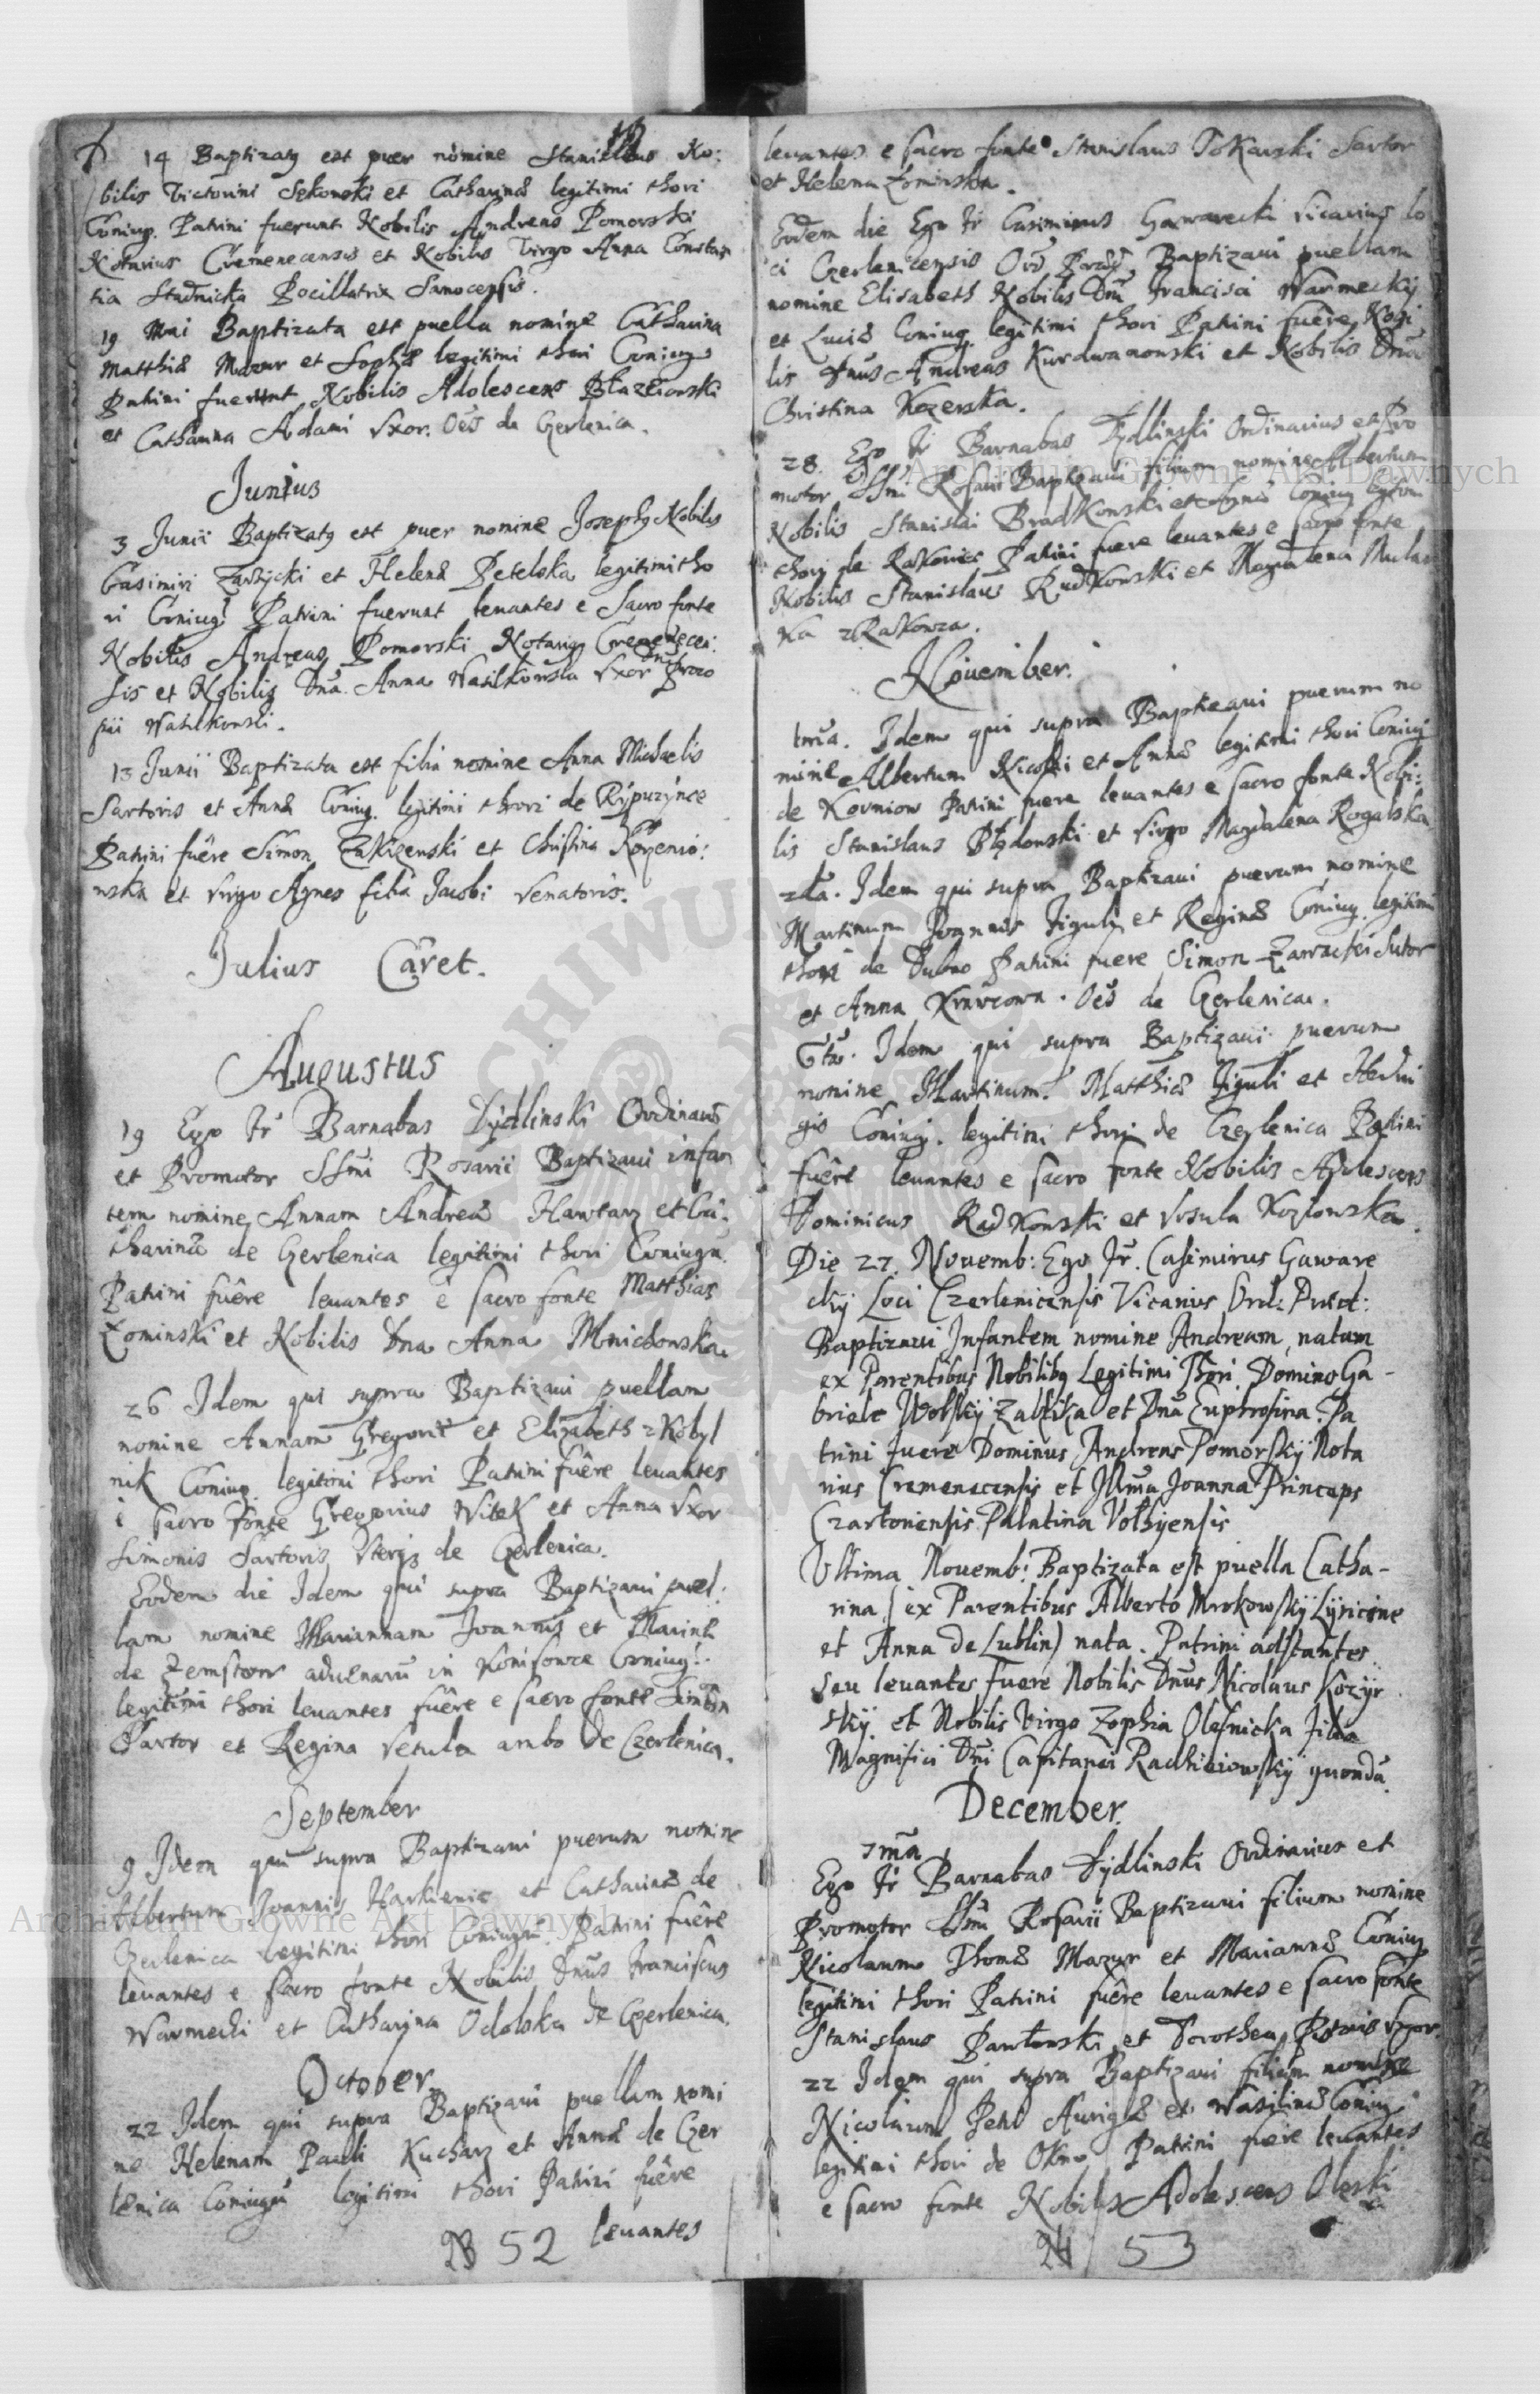 14 Baptizatq est puer nomine Stanislaus No:
bilis Victorini Sekonski et Catharinæ legitimi thori
Coniug. Patrini fuerunt Nobilis Andreas Pomorski
Notarius Cremenecensis et Nobilis Virgo Anna Constan
tia Stadnicka Pocillatrix Sanocensis.
19 Mai Baptizata est puella nomine Catharina
Matthiæ Mazur et Sophiæ legitimi thori Coniug
Patrini fuerunt Nobilis Adolescens Błazeiowski
et Catharina Adami Vxor. Oẽs de Czerlenica.
Junius
3 Junii Baptizatq est puer nomine Josephq Nobilis
Casimiri Zawżycki et Helenæ Petelska legitimi tho
ri Coniug. Patrini fuerunt leuantes e Sacro fonte
Nobilis Andreas Pomorski Notariq Cremenecen:
sis et Nobilis Dña. Anna Wasilkowska Vxor Dñi Proco
pii Wasilkowski.
13 Junii Baptizata est filia nomine Anna Michaelis
Sartoris et Annæ Coniug. legitimi thori de Rypuzynce
Patrini fuêre Simon Zakizenski et Christina Korzenio:
wska et Virgo Agnes filia Jacobi Venatoris.
Julius Caret.
Augustus
19 Ego Fr Barnabas Dydlinski Ordinariq
et Promotor SSmi Rosarii Baptizaui infan
tem nomine Annam Andreæ Hawtarz et Ca:
tharinæ de Czerlenica legitimi thori Coniugũ.
Patrini fuêre leuantes e sacro fonte Matthias
Zominski et Nobilis Dna Anna Mnichowska.
26 Idem qui supra Baptizaui puellam
nomine Annam Gregorii et Elizabeth z Kobyl
nik Coniug. legitimi thori Patrini fuêre leuantes
e sacro fonte Gregorius Witek et Anna Vxor
Simonis Sartoris Vterq de Czerlenica.
Eodem die Idem qui supra Baptizaui puel:
lam nomine Mariannam Joannis et Marinæ
de Zemstow aduenarũ in Konisowce Coniug:
legitimi thori leuantes fuêre e sacro fonte Simon
Sartor et Regina Vetula ambo de Czerlenica.
September
9 Idem qui supra Baptizaui puerum nomine
Albertum Joannis Harkienic et Catharinæ de
Czerlenica legitimi thori Coniugũ. Patrini fuêre
leuantes e sacro fonte Nobilis Dnũs Franciscus
Warmecki et Catharina Odolska de Czerlenica.
October
22 Idem qui supra Baptizaui puellam nomi
ne Helenam Pauli Kucharz et Annæ de Czer
lenica Coniugũ legitimi thori Patrini fuêre
leuantes
52
leuantes e sacro fonte Stanislaus Tokarski Sartor
et Helena Zominska.
Eodem die Ego Fr Casimirus Gawarecki Vicarius lo
ci Czerlenicensis Ord Præd Baptizaui puellam
nomine Elisabeth Nobilis Dñi Francisci Warmecky
et Luciæ Coniug. legitimi thori Patrini fuêre Nobi
lis Dnũs Andreas Kurdwanowski et Nobilis Dña
Christina Kozerska.
28. Ego Fr Barnabas Dydlinski Ordinarius et Pro
motor SSmi Rosarii Baptizaui filium nomine Albertum
Nobilis Stanislai Bradkowski et Agnis Coniug legitimi
thori de Rakowiec Patrini fuere leuantes e sacro fonte
Nobilis Stanislaus Rudkowski et Magdalena Mular
ka z Rakowca.
Nouember.
1ma. Idem qui supra Baptizaui puerum no
mine Albertum Nicolai et Annæ legitimi thori Coniug
de Korniow Patrini fuere leuantes e sacro fonte Nobi:
lis Stanislaus Błędowski et Virgo Magdalena Rogalska
2da. Idem qui supra Baptizaui puerum nomine
Martinum Joannis Figuly et Reginæ Coniug. legitimi
thori de Dubno Patrini fuere Simon Zawacki Sutor
et Anna Krawcowa. Oẽs de Czerlenica.
6ta. Idem qui supra Baptizaui puerum
nomine Martinum. Matthiæ Figuli et Hedui
gis Coniug. legitimi thori de Czerlenica Patrini
fuêre leuantes e sacro fonte Nobilis Adolescens
Dominicus Radkowski et Vrsula Kozlowska.
Die 27. Nouemb: Ego Fr. Casimirus Gaware
cky Loci Czerlenicensis Vicarius Ord: Præd:
Baptizaui Infantem nomine Andream, natum
ex Parentibus Nobilibq Legitimi Thori. Domino Ga-
briele Wolsky Zabłika et Dna Euphrosina. Pa
trini fuere Dominus Andreas Pomorsky Nota
rius Cremenecensis et Illma Joanna Princeps
Czartoriensis Palatina Volhyensis
Vltima Nouemb: Baptizata est puella Catha-
rina (ex Parentibus Alberto Mrokowsky Lyricine
et Anna de Lublin) nata. Patrini adstantes
seu leuantes fuere Nobilis Dnũs Nicolaus Kozyr
sky et Nobilis Virgo Zophia Olesnicka filia
Magnifici Dñi Capitanei Radhieiowsky quondã.
December.
1ma
Ego Fr Barnabas Dydlinski Ordinarius et
Promotor SSmi Rosarii Baptizaui filium nomine
Nicolaum Thomæ Mazur et Mariannæ Coniug
legitimi thori Patrini fuêre leuantes e sacro fonte
Stanislaus Pawłowski et Dorothea Pistoris Vxor.
22 Idem qui supra Baptizaui filium nomine
Nicolaum Fehl Aurigæ et Wasilinæ Coniug
legitimi thori de Okno Patrini fuere leuantes
e sacro fonte Nobilis Adolescens Oleski
53
Archiwum Główne Akt Dawnych
Archiwum Główne Akt Dawnych